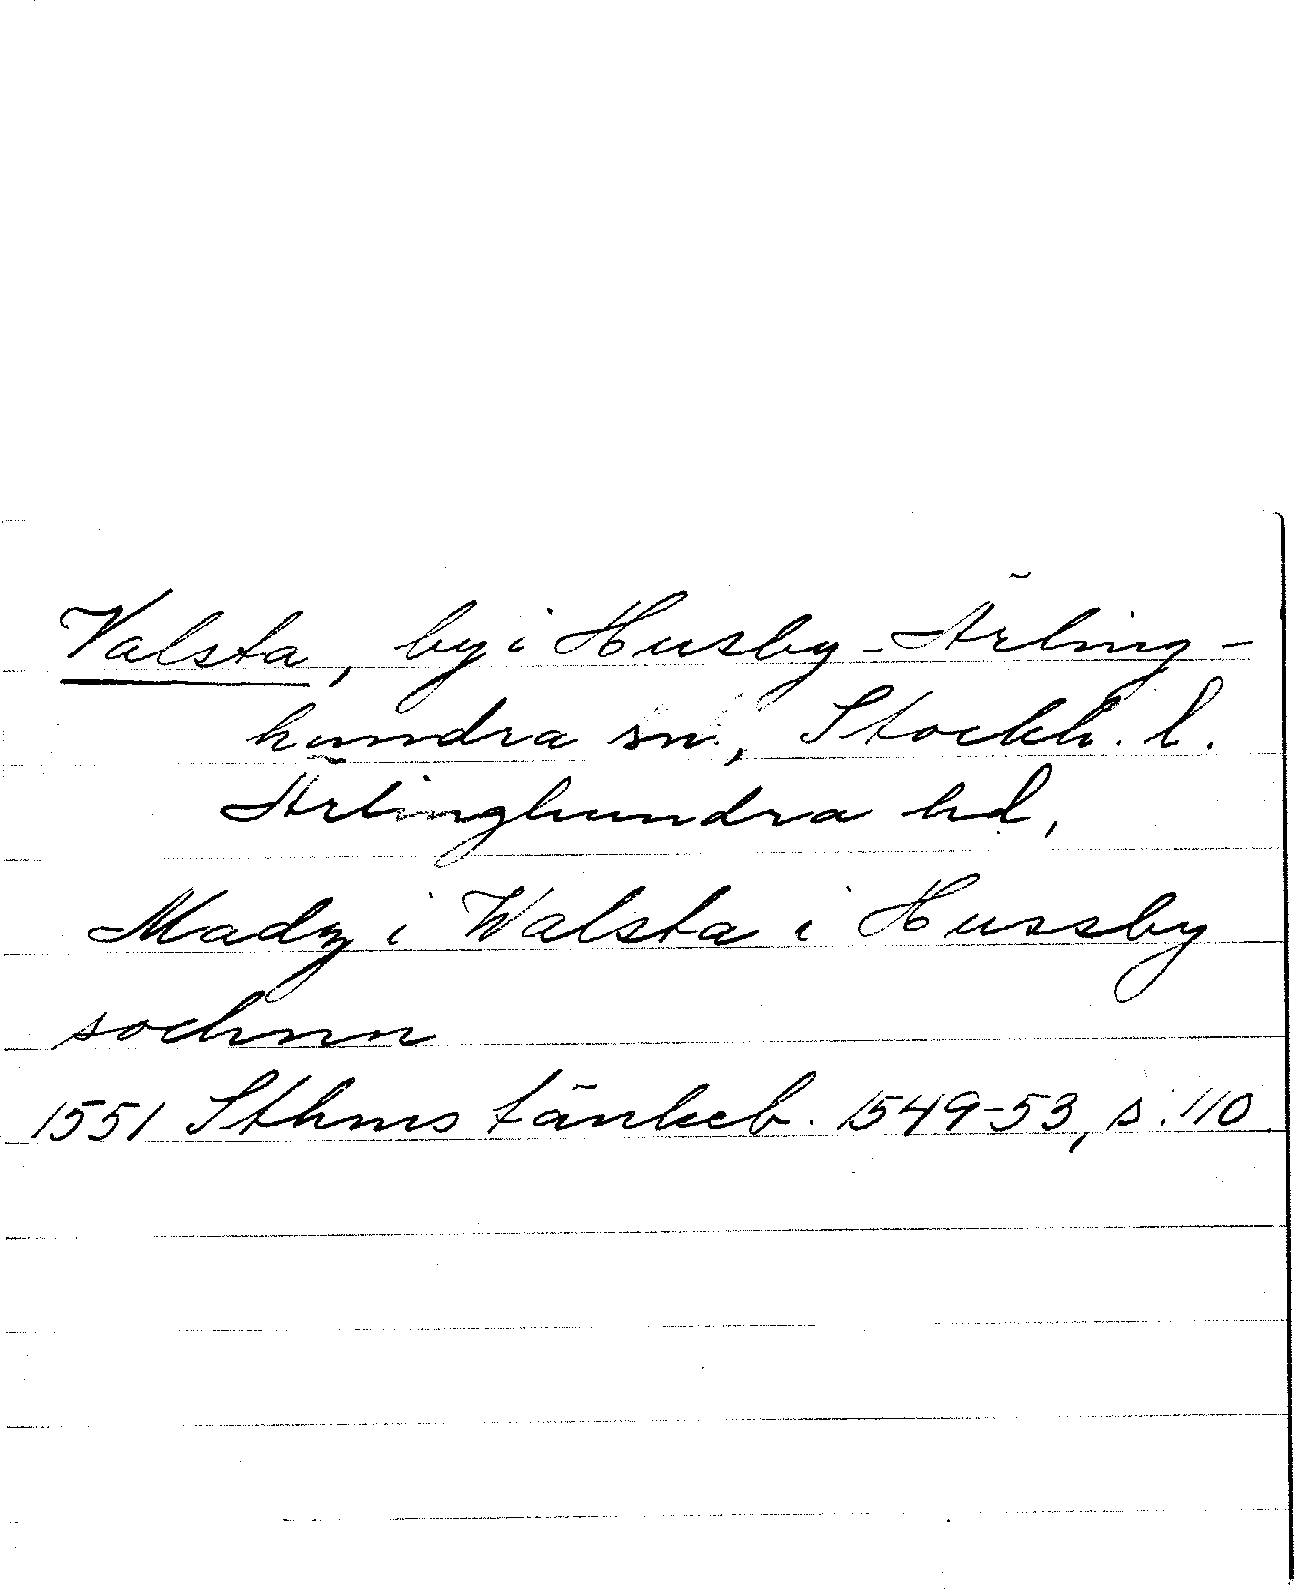 Valsta, by i Husby-Ärling-
hundra sn., Stockh. l.
Ärlinghundra hd,
Madz i Walsta i Hussby
sochnn
1551 Sthms tänkeb. 1549-53, s. 110.